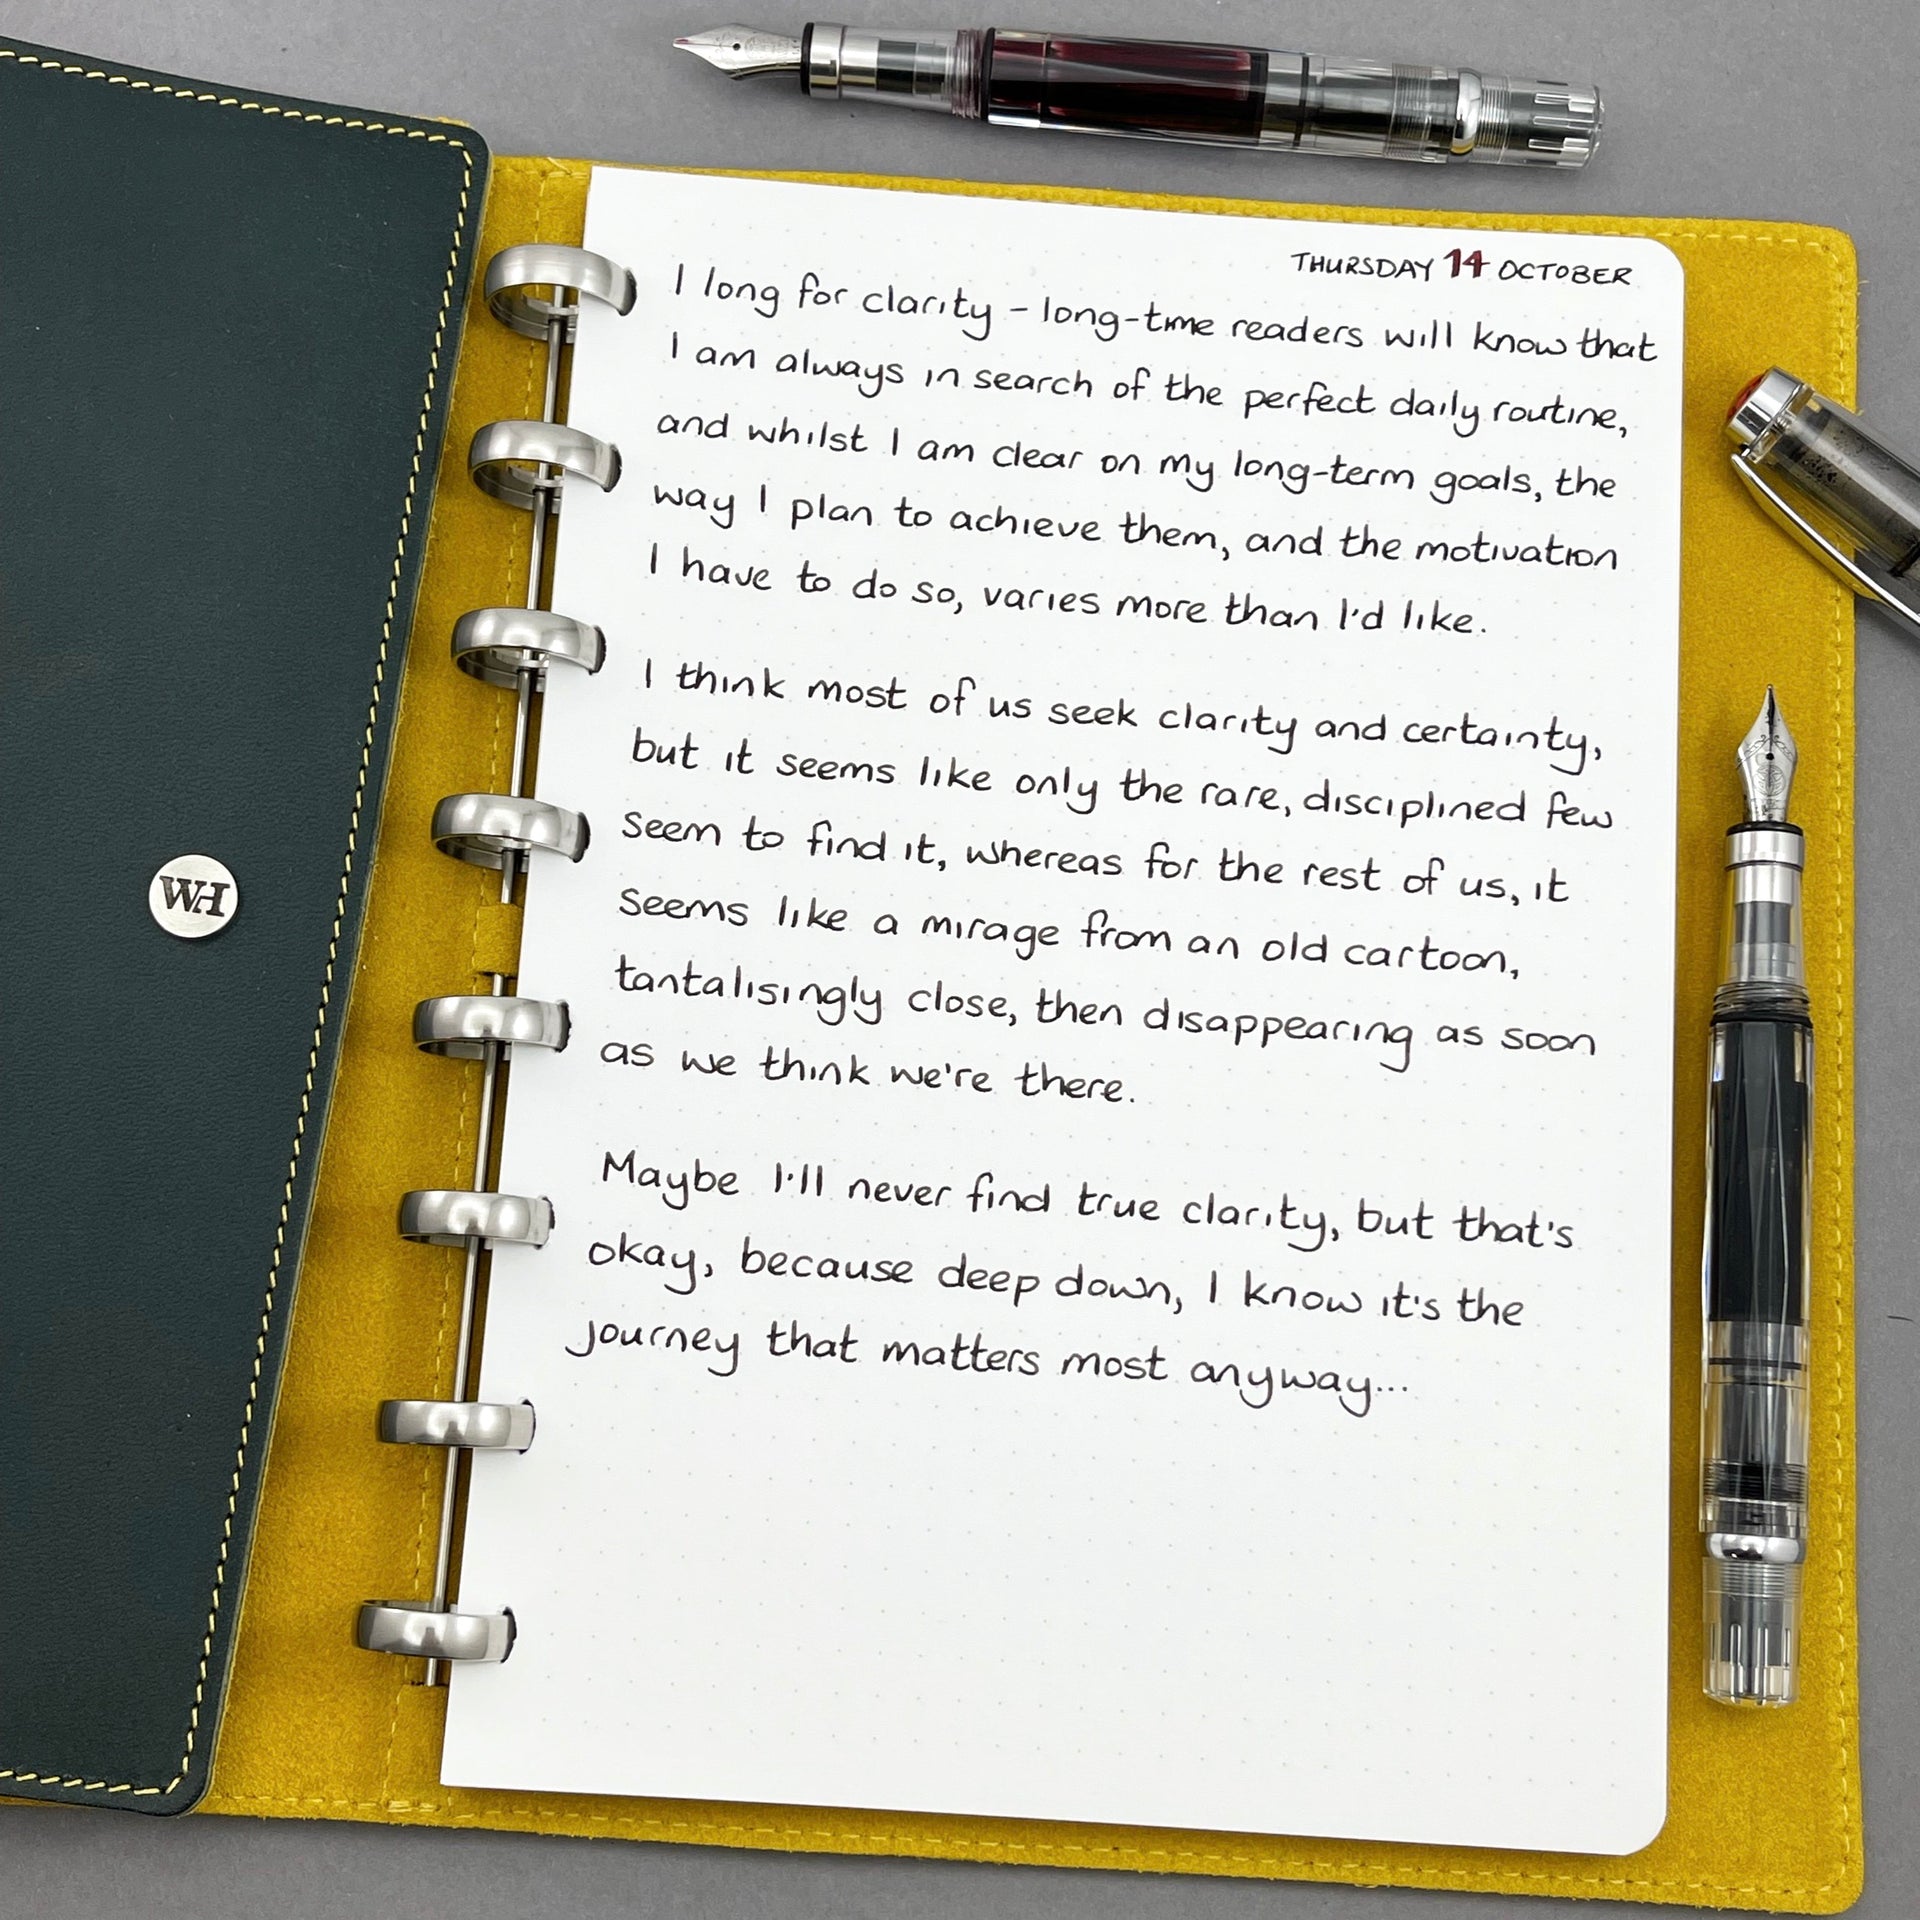 THURSDAY 14 OCTOBER
I long for clarity - long-time readers will know that
I am always in search of the perfect daily routine,
and whilst I am clear on my long-term goals, the
way I plan to achieve them, and the motivation
I have to do so, varies more than I'd like.
I think most of us seek clarity and certainty,
but it seems like only the rare, disciplined few
seem to find it, whereas for the rest of us, it
seems like a mirage from an old cartoon,
tantalisingly close, then disappearing as soon
as we think we're there.
Maybe I'll never find true clarity, but that's
okay, because deep down, I know it's the
journey that matters most anyway...
WH